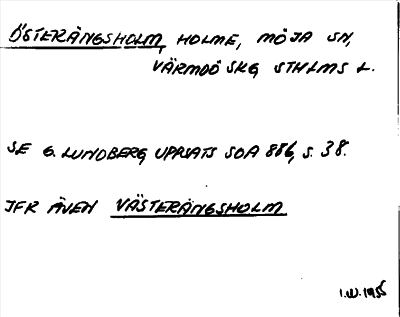 ÖSTERÄNGSHOLM, HOLME, MÖJA SN,
VÄRMDÖ SKG, STHLMS L.
SE G. LUNDBERG, UPPSATS SOA 886, S. 38.
JFR ÄVEN VÄSTERÄNGSHOLM
1955